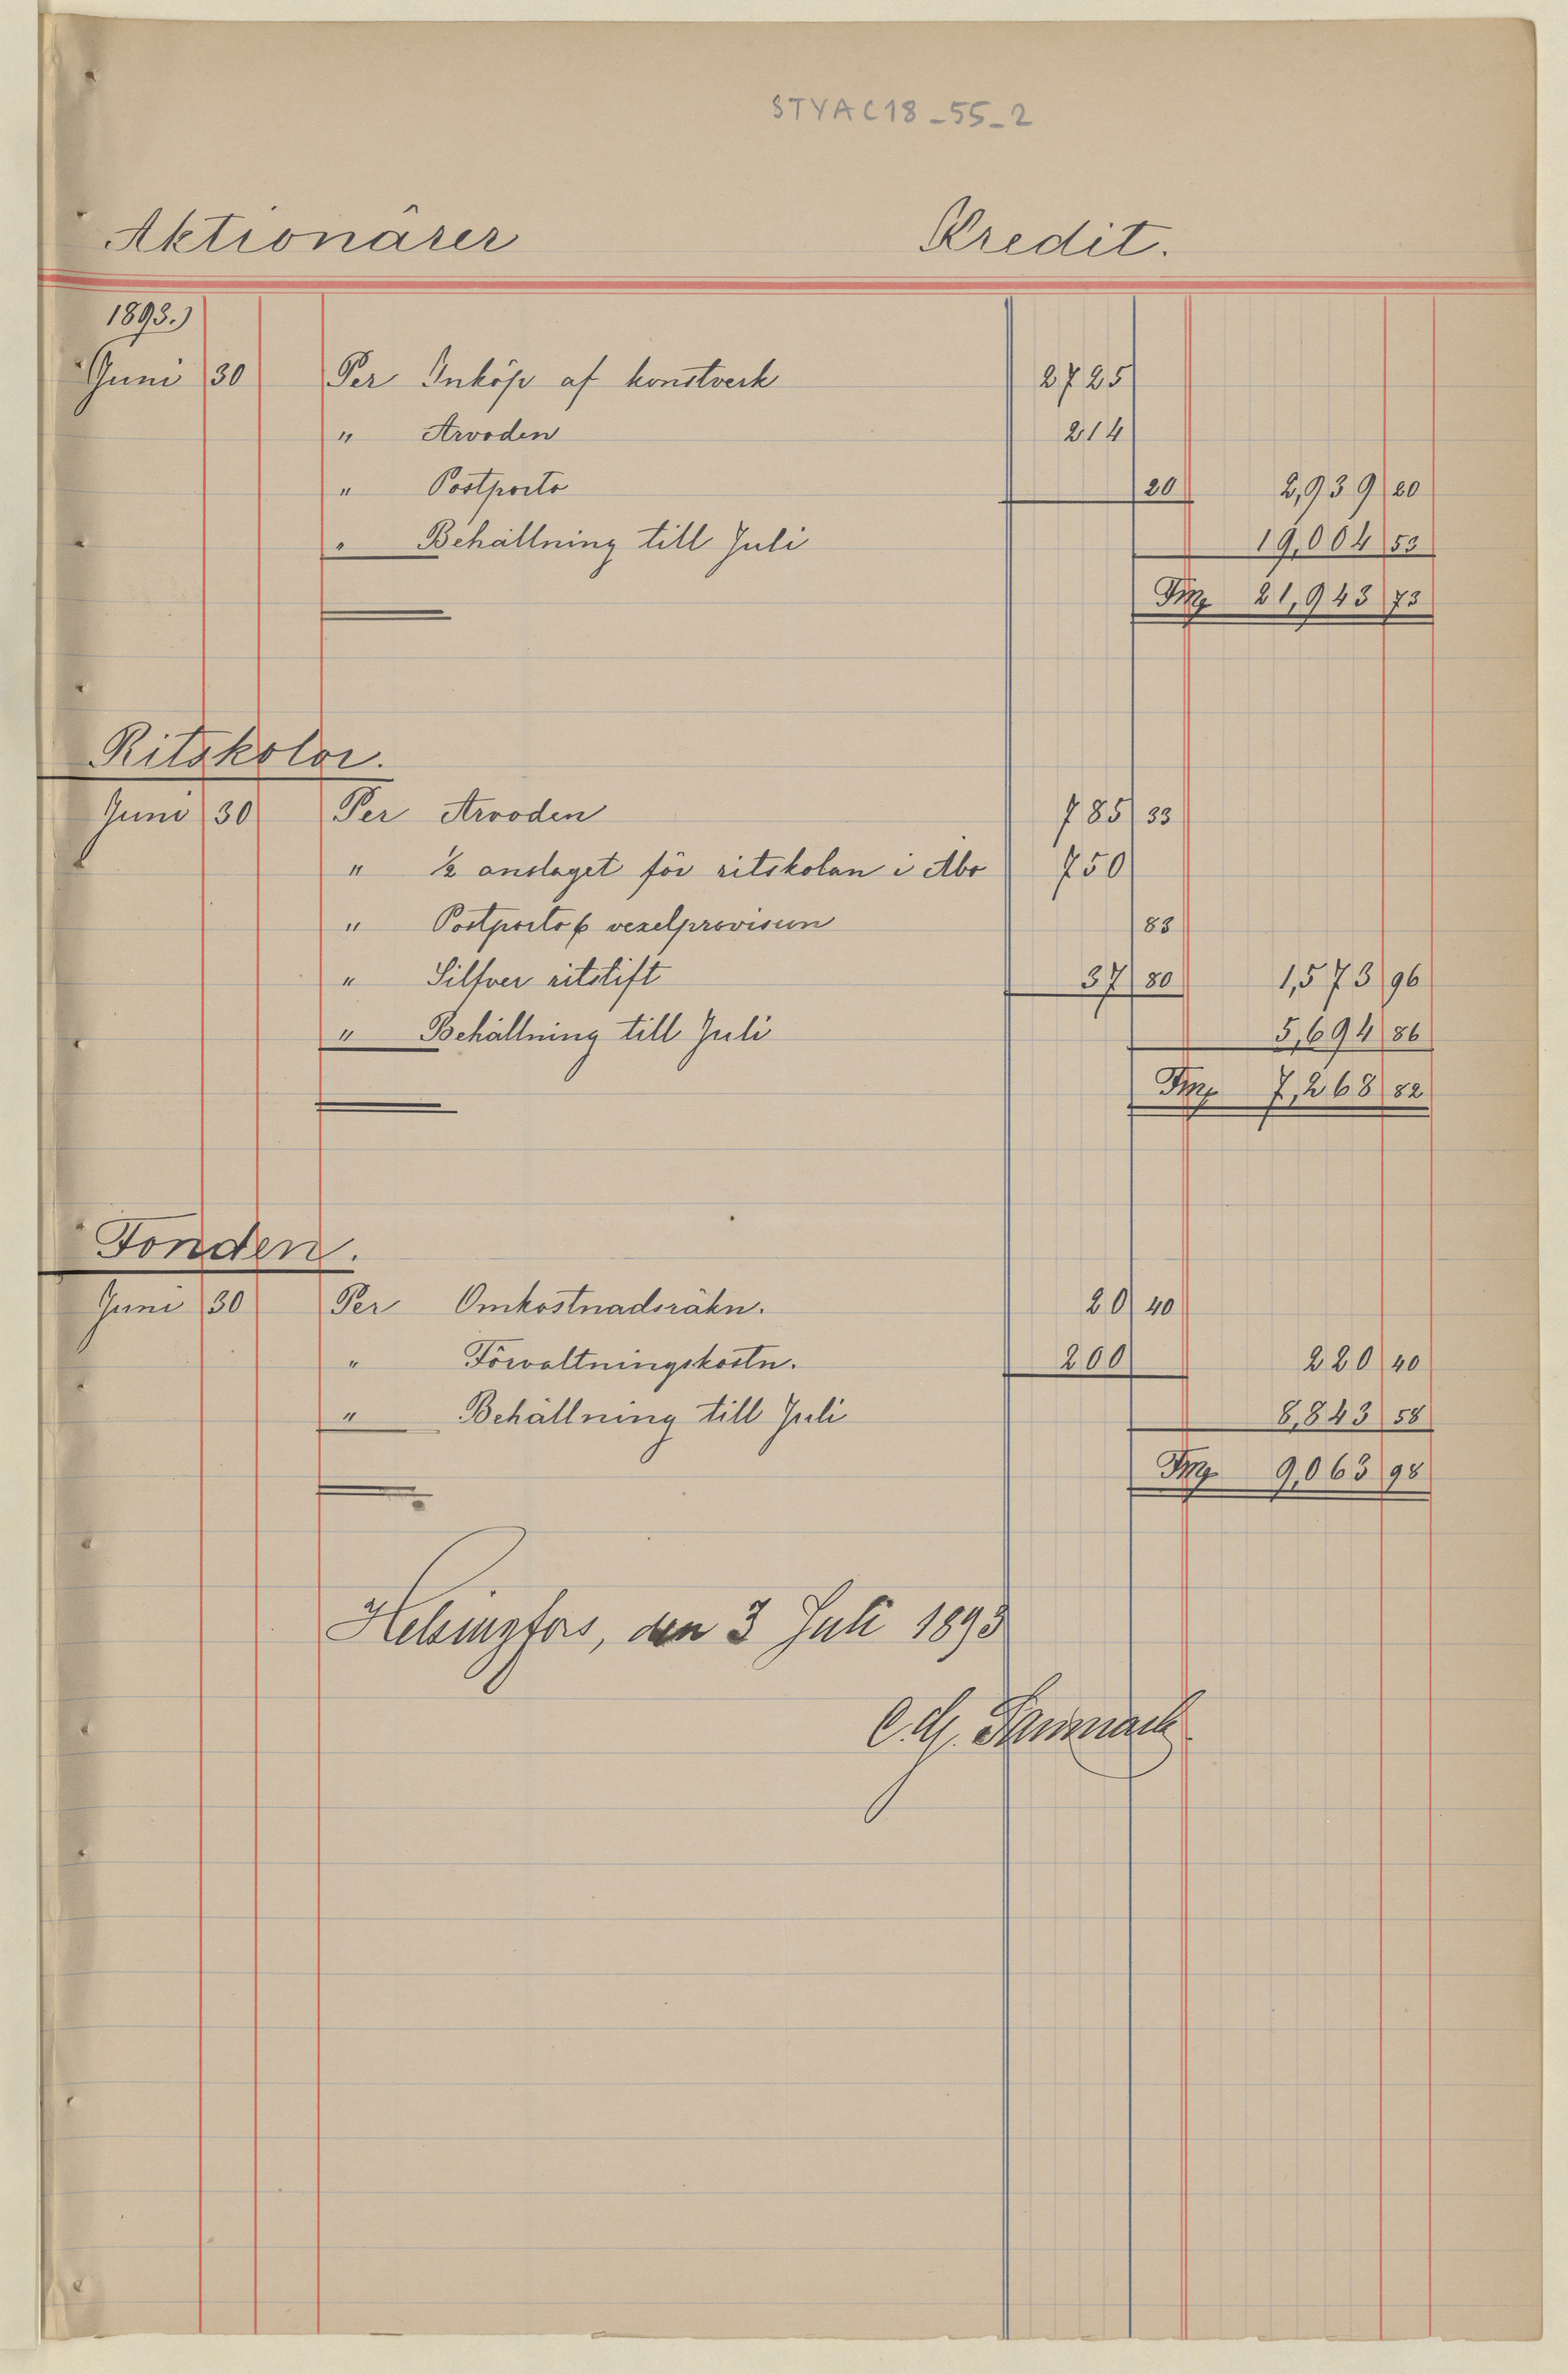 STYAC18-55-2
Aktionärer Kredit.
1893.)
Juni 30 Per Inköp af konstverk 2725
" Arvoden 214
" Postporto 20 2,939 20
" Behållning till Juli 19,004 53
Fmg 21,943 73
Ritskolor.
Juni 30 Per Arvoden 785 33
" ½ anslaget för ritskolan i Åbo 750
" Postporto & vexelprovision 83
" Silfver ritstift 37 80 1,573 96
" Behållning till Juli 5,694 86
Fmg 7,268 82
Fonden.
Juni 30 Per Omkostnadsräkn. 20 40
" Förvaltningskostn. 200 220 40
" Behållning till Juli 8,843 58
Fmg 9,063 98
Helsingfors, den 3 Juli 1893